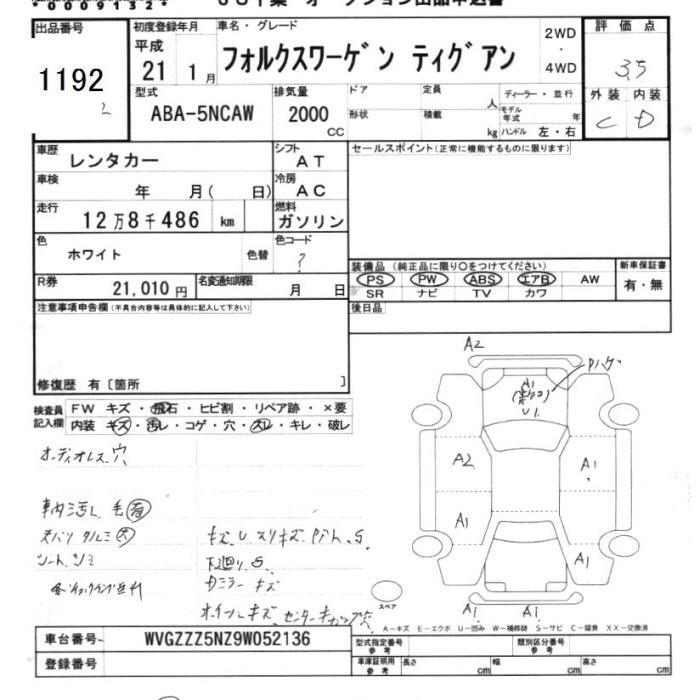 出品番号 初度登録年月 車名・グレード 2WD ・ 4WD 評価点
1192 平成 21 1月 フォルクスワーゲン ティグアン 3.5
2
型式 排気量 ドア 定員 人 ディーラー・並行 外装 内装
ABA-5NCAW 2000 CC 形状 積載 kg モデル年式 年 C D
ハンドル 左・右
車歴 レンタカー シフト AT セールスポイント(正常に機能するものに限ります)
車検 年 月( 日) 冷房 AC
走行 12万8千486 km 燃料 ガソリン
色 ホワイト 色替 色コード ?
装備品(純正品に限り○をつけてください) 新車保証書
R券 21,010円 名変通知期限 月 日 PS PW ABS エアB AW 有・無
SR ナビ TV カワ
注意事項申告欄(不具合内容等は具体的に記入して下さい) 後日品
修復歴 有〔箇所 〕
検査員記入欄 FW キズ・飛石・ヒビ割・リペア跡・×要
内装 キズ・汚レ・コゲ・穴・スレ・キレ・破レ
A2
A1
U1
A2 A1
A1 A1
A1 A1
オーディオレス 穴
車内汚れ 毛 有
天バリ タルミ 大 キズ.U.スリキズ S.
シートシミ 下廻り.S.
ミラー キズ
ホイールキズ
スペア
A－キズ E－エクボ U－凹み W－補修跡 S－サビ C－腐食 XX－交換済
車台番号 WVGZZZ5NZ9W052136 型式指定番号 参考 類別区分番号 参考
登録番号 車庫証明用 参考 長さ cm 幅 cm 高さ cm